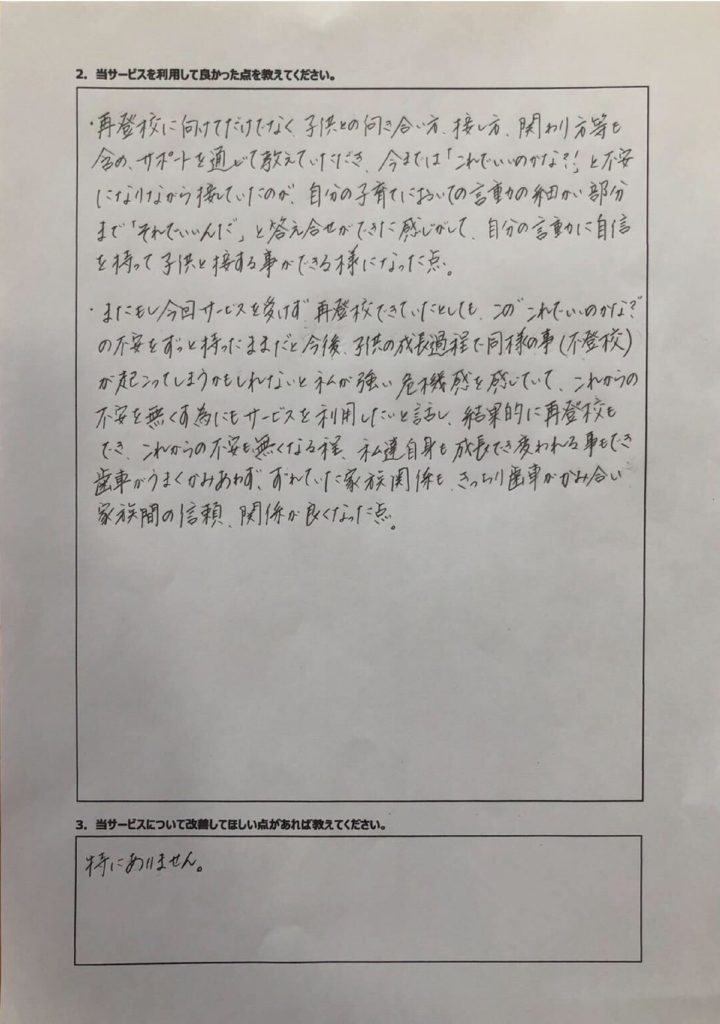 2. 当サービスを利用して良かった点を教えてください。
・再登校に向けてだけでなく、子供との向き合い方、接し方、関わり方等も
含め、サポートを通じて教えていただき、今までは「これでいいのかな?!」と不安
になりながら接していたのが、自分の子育てにおいての言動の細かい部分
まで「それでいいんだ」と答え合せができた感じがして、自分の言動に自信
を持って子供と接する事ができる様になった点。
・またもし今回サービスを受けず再登校できていたとしても、この"これでいいのかな?"
の不安をずっと持ったままだと今後、子供の成長過程で同様の事(不登校)
が起こってしまうかもしれないと私が強い危機感を感じていて、これからの
不安を無くす為にもサービスを利用したいと話し、結果的に再登校も
でき、これからの不安も無くなる程、私達自身も成長でき変われる事もでき
歯車がうまくかみあわず、ずれていた家族関係も、きっちり歯車がかみ合い
家族間の信頼、関係が良くなった点。
3. 当サービスについて改善してほしい点があれば教えてください。
特にありません。